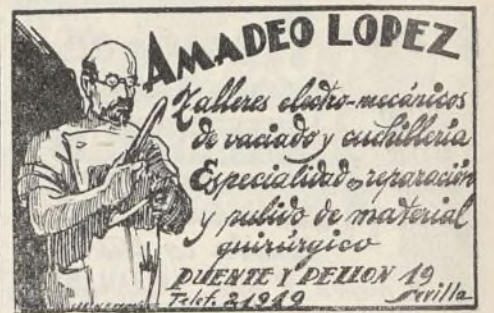 AMADEO LOPEZ
Talleres electro-mecánicos
de vaciado y cuchillería
Especialidad en reparación
y pulido de material
quirúrgico
PUENTE Y PELLON 19
Telef. 21919 Sevilla